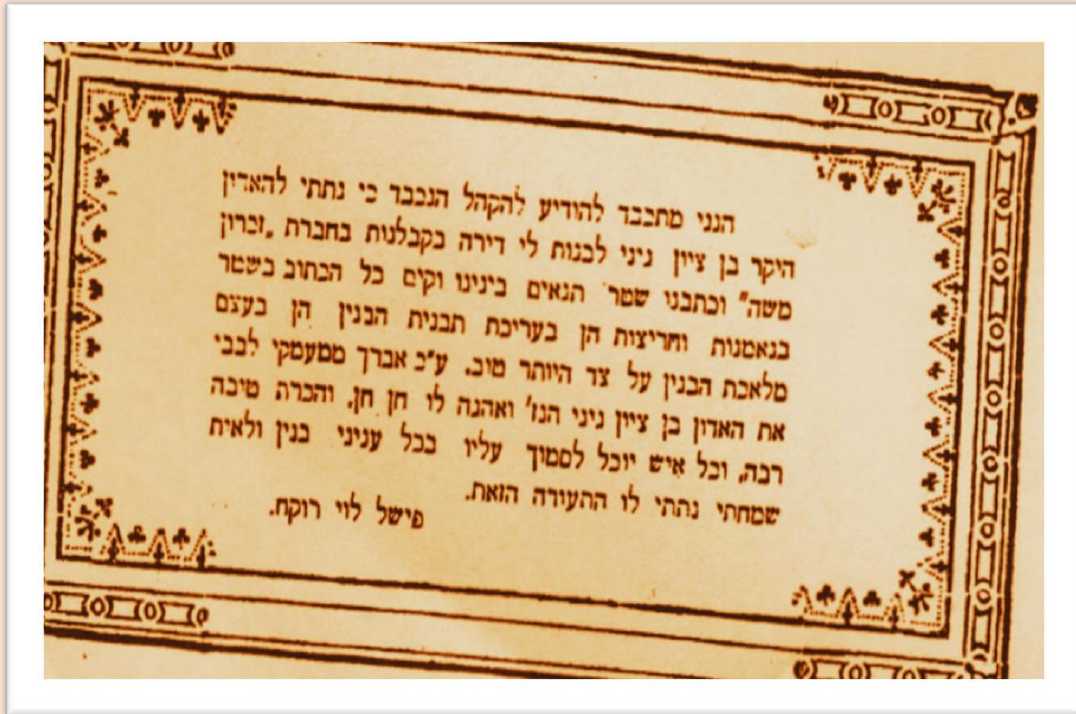 הנני מתכבד להודיע להקהל הנכבד כי נתתי להאדון
היקר בן ציון ניני לבנות לי דירה בקבלנות בחברת „זכרון
משה" וכתבנו שטר תנאים בינינו וקים כל הכתוב בשטר
בנאמנות וחריצות הן בעריכת תבנית הבנין הן בעצם
מלאכת הבנין על צד היותר טוב. ע"כ אברך ממעמקי לבבי
את האדון בן ציון ניני הנז' ואהגה לו חן חן, והכרת טיבה
רבה, וכל איש יוכל לסמוך עליו בכל עניני בנין ולאית
שמחתי נתתי לו התעודה הזאת.
פישל לוי רוקח.